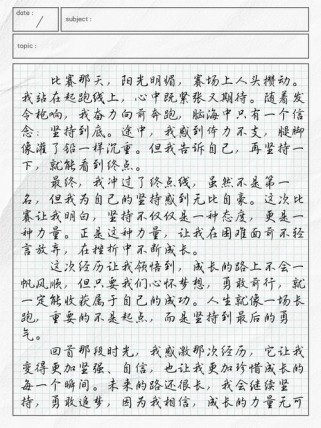 date :
subject :
topic :
比赛那天，阳光明媚，赛场上人头攒动。
我站在起跑线上，心中既紧张又期待。随着发
令枪响，我奋力向前奔跑，脑海中只有一个信
念：坚持到底。途中，我感到体力不支，腿脚
像灌了铅一样沉重。但我告诉自己，再坚持一
下，就能看到终点。
最终，我冲过了终点线，虽然不是第一
名，但我为自己的坚持感到无比自豪。这次比
赛让我明白，坚持不仅仅是一种态度，更是一
种力量。正是这种力量，让我在困难面前不轻
言放弃，在挫折中不断成长。
这次经历让我领悟到，成长的路上不会一
帆风顺，但只要我们心怀梦想，勇敢前行，就
一定能收获属于自己的成功。人生就像一场长
跑，重要的不是起点，而是坚持到最后的勇
气。
回首那段时光，我感激那次经历，它让我
变得更加坚强、自信，也让我更加珍惜成长的
每一个瞬间。未来的路还很长，我会继续坚
持，勇敢追梦，因为我相信，成长的力量无可